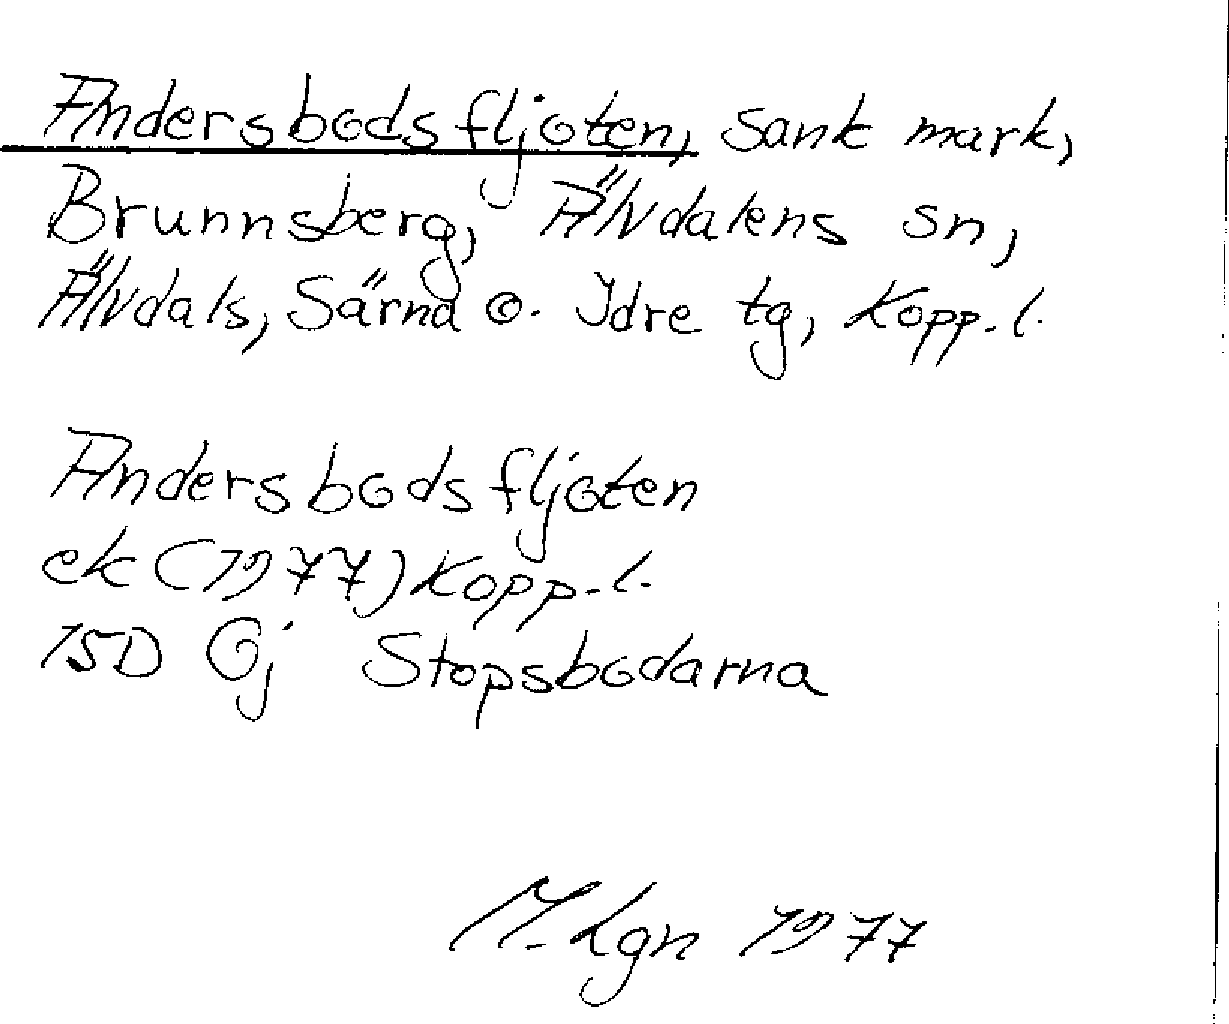 Andersbodsfljoten, sank mark,
Brunnsberg, Älvdalens sn,
Älvdals, Särna o. Idre tg, Kopp. l.
Andersbodsfljoten
ek (1977) Kopp. l.
15D Gj Stopsbodarna
M. Lgn 1977